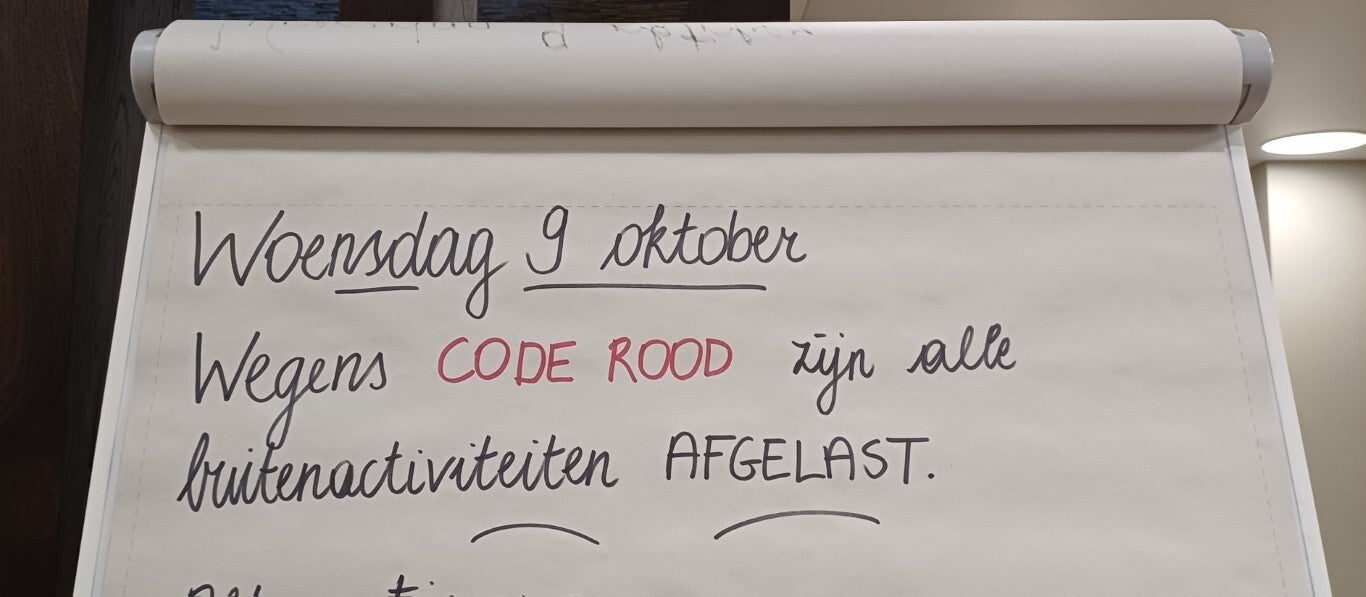 Woensdag 9 oktober
Wegens CODE ROOD zijn alle
buitenactiviteiten AFGELAST.